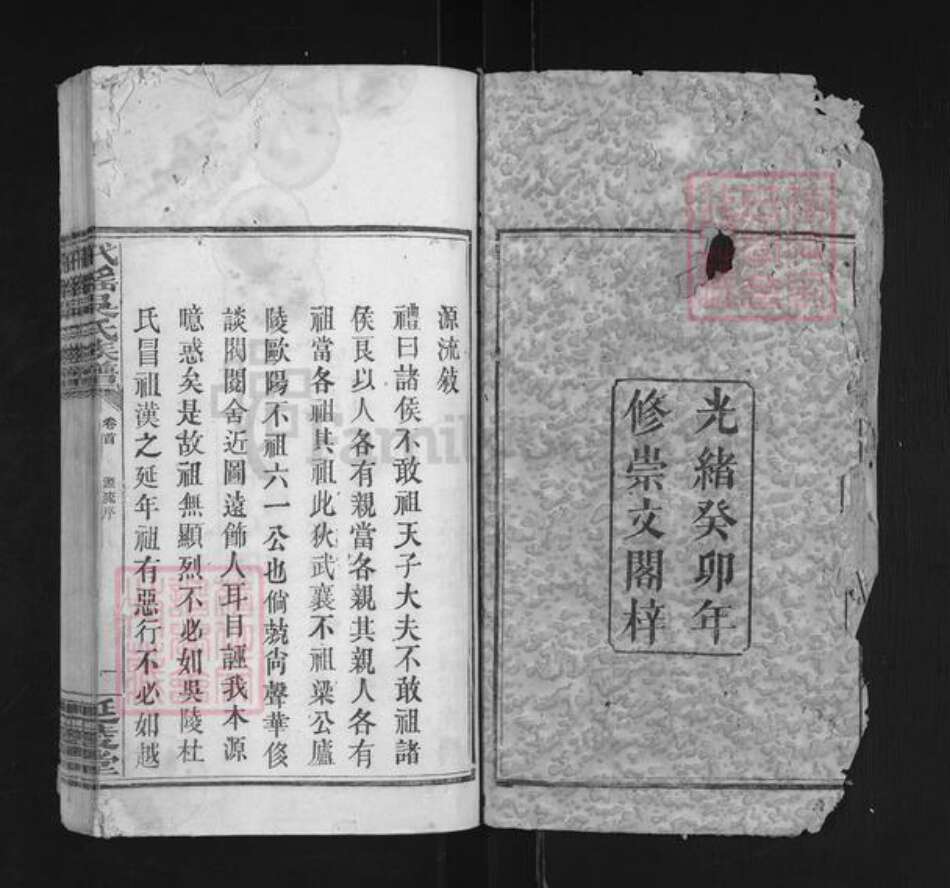 光緒癸卯年
修崇文閣梓
源流敘
禮曰諸侯不敢祖天子大夫不敢祖諸
侯艮以人各有親當各親其親人各有
祖當各祖其祖此狄武襄不祖梁公廬
陵歐陽不祖六一公也倘兢尙聲華侈
談閥閱舍近圖遠飾人耳目誣我木源
噫惑矣是故祖無顯烈不必如吳陵杜
氏冒祖漢之延年祖有惡行不必如越
吳氏族譜
卷首
源流序
一